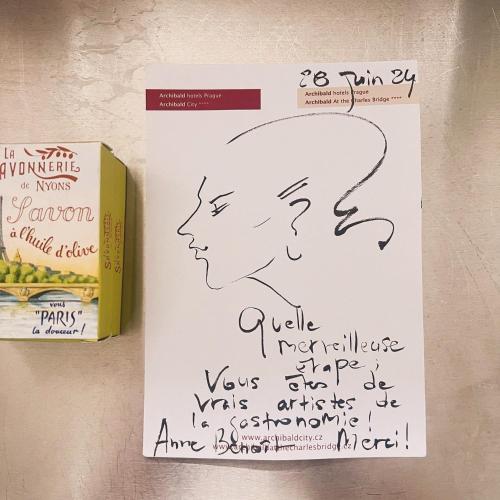 LA
SAVONNERIE
DE NYONS
Savon
à l'huile d'olive
vous
"PARIS"
la douceur!
28 Juin 24
Archibald hotels Prague
Archibald City ****
Archibald hotels Prague
Archibald At the Charles Bridge ****
Quelle
merveilleuse
étape;
Vous êtes de
vrais artistes de
la gastronomie!
www.archibaldcity.cz
Anne Merci!
www.archibaldatthecharlesbridge.cz